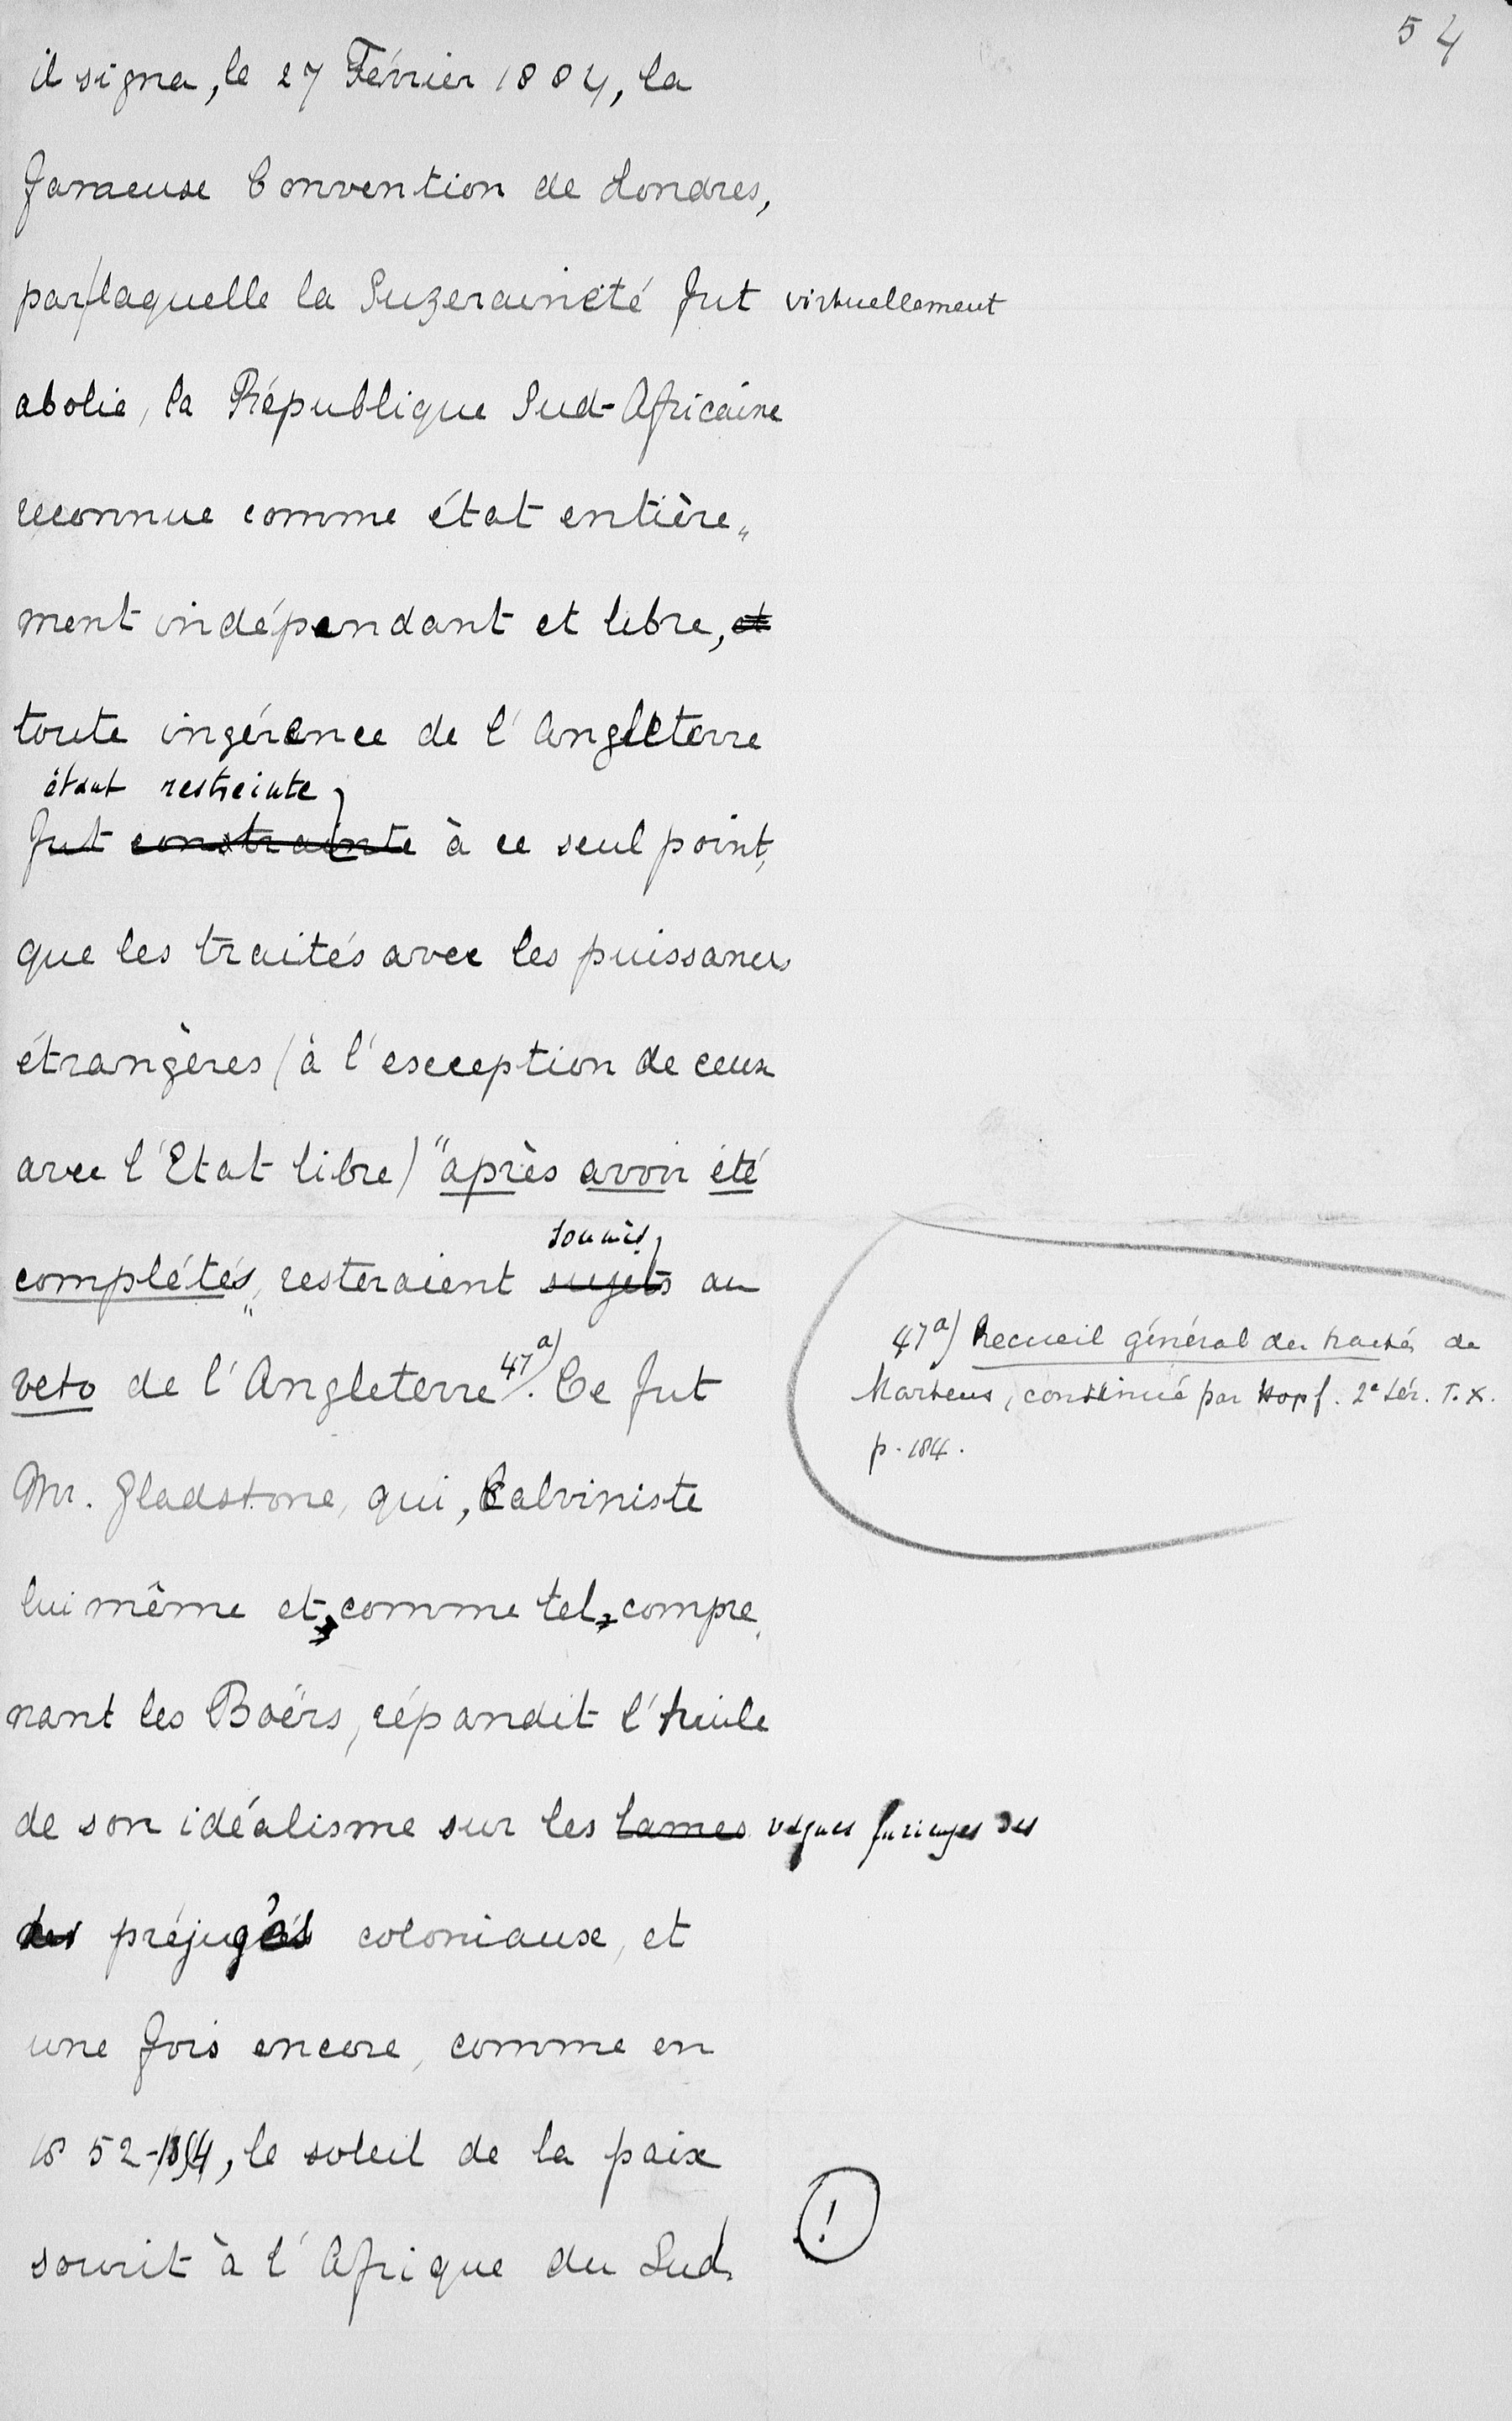 54
il signa, le 27 Février 1884, la
fameuse Convention de Londres,
par laquelle la Suzeraineté fut virtuellement
abolie, la République Sud-Africaine
reconnue comme état entière„
ment indépendant et libre, et
toute ingérence de l'Angleterre
étant restreinte
fut constrainte à ce seul point,
que les traités avec les puissances
étrangères (à l'exception de ceux
avec l'Etat libre) "après avoir été
soumis
complétés„ resteraient sujets au
veto de l'Angleterre 47a). Ce fut
Mr. Gladstone, qui, Calviniste
lui même et, comme tel, compre„
nant les Boërs, répandit l'huile
de son idéalisme sur les lames vagues furieuses des
des préjugés coloniaux, et
une fois encore, comme en
1852-1854, le soleil de la paix
sourit à l'Afrique du Sud.
!
47a) Recueil général des traités de
Martens, continué par Hopf. 2e Sér. T. X.
p. 184.